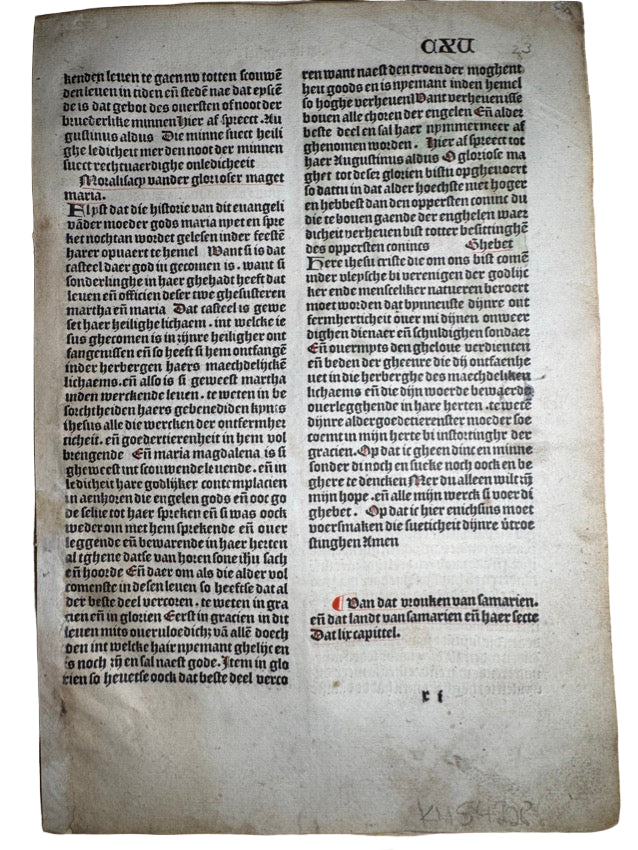 CXU
23
kenden leuen te gaen nv totten scouwē
den leuen in tiden eñ stedē nae dat eyscē
de is dat gebot des ouersten of noot der
bruederlike minnen Hier af spreect Au
gustinus aldus Die minne suect heili
ghe ledicheit mer den noot der minnen
suect rechtuaerdighe onledicheeit
Moralisacy vander glorioser maget
maria.
Elyst dat die historie van dit euangeli
vāder moeder gods maria nyet en spre
ket nochtan wordet gelesen inder feestē
harer opuaert te hemel Want si is dat
casteel daer god in gecomen is. want si
sonderlinghe in haer ghehadt heeft dat
leuen eñ officien deser twe ghesusteren
martha eñ maria Dat casteel is gewe
set haer heilighe lichaem. int welcke ie
sus ghecomen is in zijnre heiligher ont
fangenissen eñ so heeft si hem ontfangē
inder herbergen haers maechdelijckē
lichaems. eñ also is si geweest martha
inden werckende leuen. te weten in be
sorchtheiden haers gebenediden kynts
ihesus alle die wercken der ontfermher
ticheit. eñ goedertierenheit in hem vol
brengende Eñ maria magdalena is si
gheweest int scouwende leuende. eñ in
ledicheit hare godlijker contemplacien
in aenhoren die engelen gods eñ ooc go
de selue tot haer spreken eñ si was oock
weder om met hem sprekende eñ ouer
leggende eñ bewarende in haer herten
al tghene datse van horen sone ihū sach
eñ hoorde Eñ daer om als die alder vol
comenste in desen leuen so heeftse dat al
der beste deel vercoren. te weten in gra
cien eñ in glorien Eerst in gracien in dit
leuen mits oueruloedich; vā allē doech
den int welcke hair nyemant ghelijc en
is noch zij en sal naest gode. Item in glo
rien so heuetse oock dat beste deel verco
ren want naest den troen der moghent
heit goods en is nyemant inden hemel
so hoghe verheuen Want verheuen isse
bouen alle choren der engelen Eñ alder
beste deel en sal haer nymmermeer af
ghenomen worden. Hier af spreect tot
haer Augustinus aldus O gloriose ma
ghet tot deser glorien bistu opgheuoert
so dattu in dat alder hoechste niet hoger
en hebbest dan den oppersten coninc du
die te bouen gaende der enghelen waer
dicheit verheuen bist totter besittinghē
des oppersten conincs Ghebet
Here ihesu criste die om ons bist comē
inder vleysche bi verenigen der godlijc
ker ende menscliker natueren beroert
moet worden dat bynneuste dijnre ont
fermherticheit ouer mi dijnen onweer
dighen dienaer eñ schuldighen sondaer
Eñ ouermyts den gheloue verdienten
eñ beden der gheenre die dij ontfaenhe
uet in die herberghe des maechdeliken
lichaems eñ die dijn woerde bewaerde
ouerlegghende in hare herten. te wetē
dijnre aldergoedetierenster moeder soe
coemt in mijn herte bi instortinghr der
gracien. Op dat ic gheen dinc en minne
sonder di noch en sueke noch oock en be
ghere te dencken Mer du alleen wilt zij
mijn hope. eñ alle mijn werck si voer di
ghebet. Op dat ic hier enichsins moet
voersmaken die sueticheit dijnre v̄troe
stinghen Amen
Van dat vrouken van samarien.
eñ dat landt van samarien eñ haer secte
Dat lix capittel.
r i